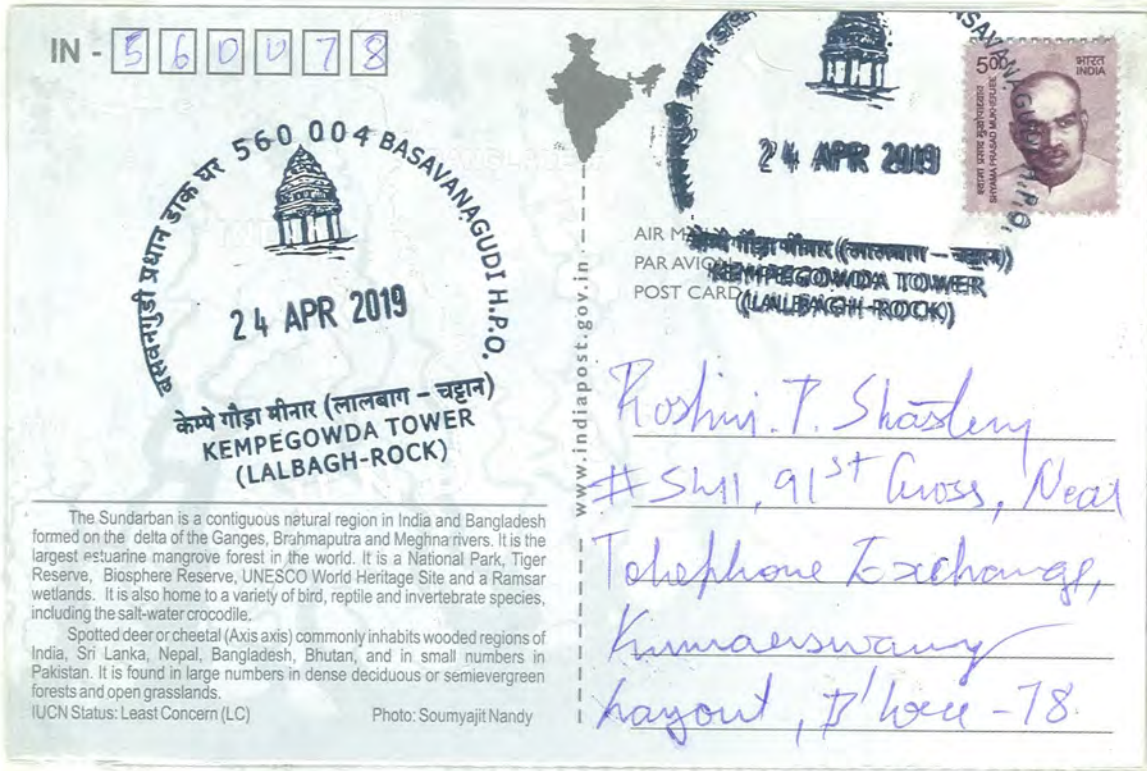 IN - 560078
बसवनगुडी प्रधान डाक घर 560 004 BASAVANAGUDI H.P.O.
24 APR 2019
केम्पे गौड़ा मीनार (लालबाग – चट्टान)
KEMPEGOWDA TOWER
(LALBAGH-ROCK)
The Sundarban is a contiguous natural region in India and Bangladesh
formed on the delta of the Ganges, Brahmaputra and Meghna rivers. It is the
largest estuarine mangrove forest in the world. It is a National Park, Tiger
Reserve, Biosphere Reserve, UNESCO World Heritage Site and a Ramsar
wetlands. It is also home to a variety of bird, reptile and invertebrate species,
including the salt-water crocodile.
Spotted deer or cheetal (Axis axis) commonly inhabits wooded regions of
India, Sri Lanka, Nepal, Bangladesh, Bhutan, and in small numbers in
Pakistan. It is found in large numbers in dense deciduous or semievergreen
forests and open grasslands.
IUCN Status: Least Concern (LC)
Photo: Soumyajit Nandy
www.indiapost.gov.in
BASAVANAGUDI H.P.O.
24 APR 2019
केम्पे गौड़ा मीनार (लालबाग – चट्टान)
KEMPEGOWDA TOWER
(LALBAGH-ROCK)
5.00
भारत
INDIA
श्यामा प्रसाद मुखोपाध्याय
SHYAMA PRASAD MUKHERJEE
AIR
PAR AVION
POST CARD
Roshni. P. Shastery
91st Cross, Near
Telephone Exchange,
Kumaerswamy
Layout, B'lore - 78.